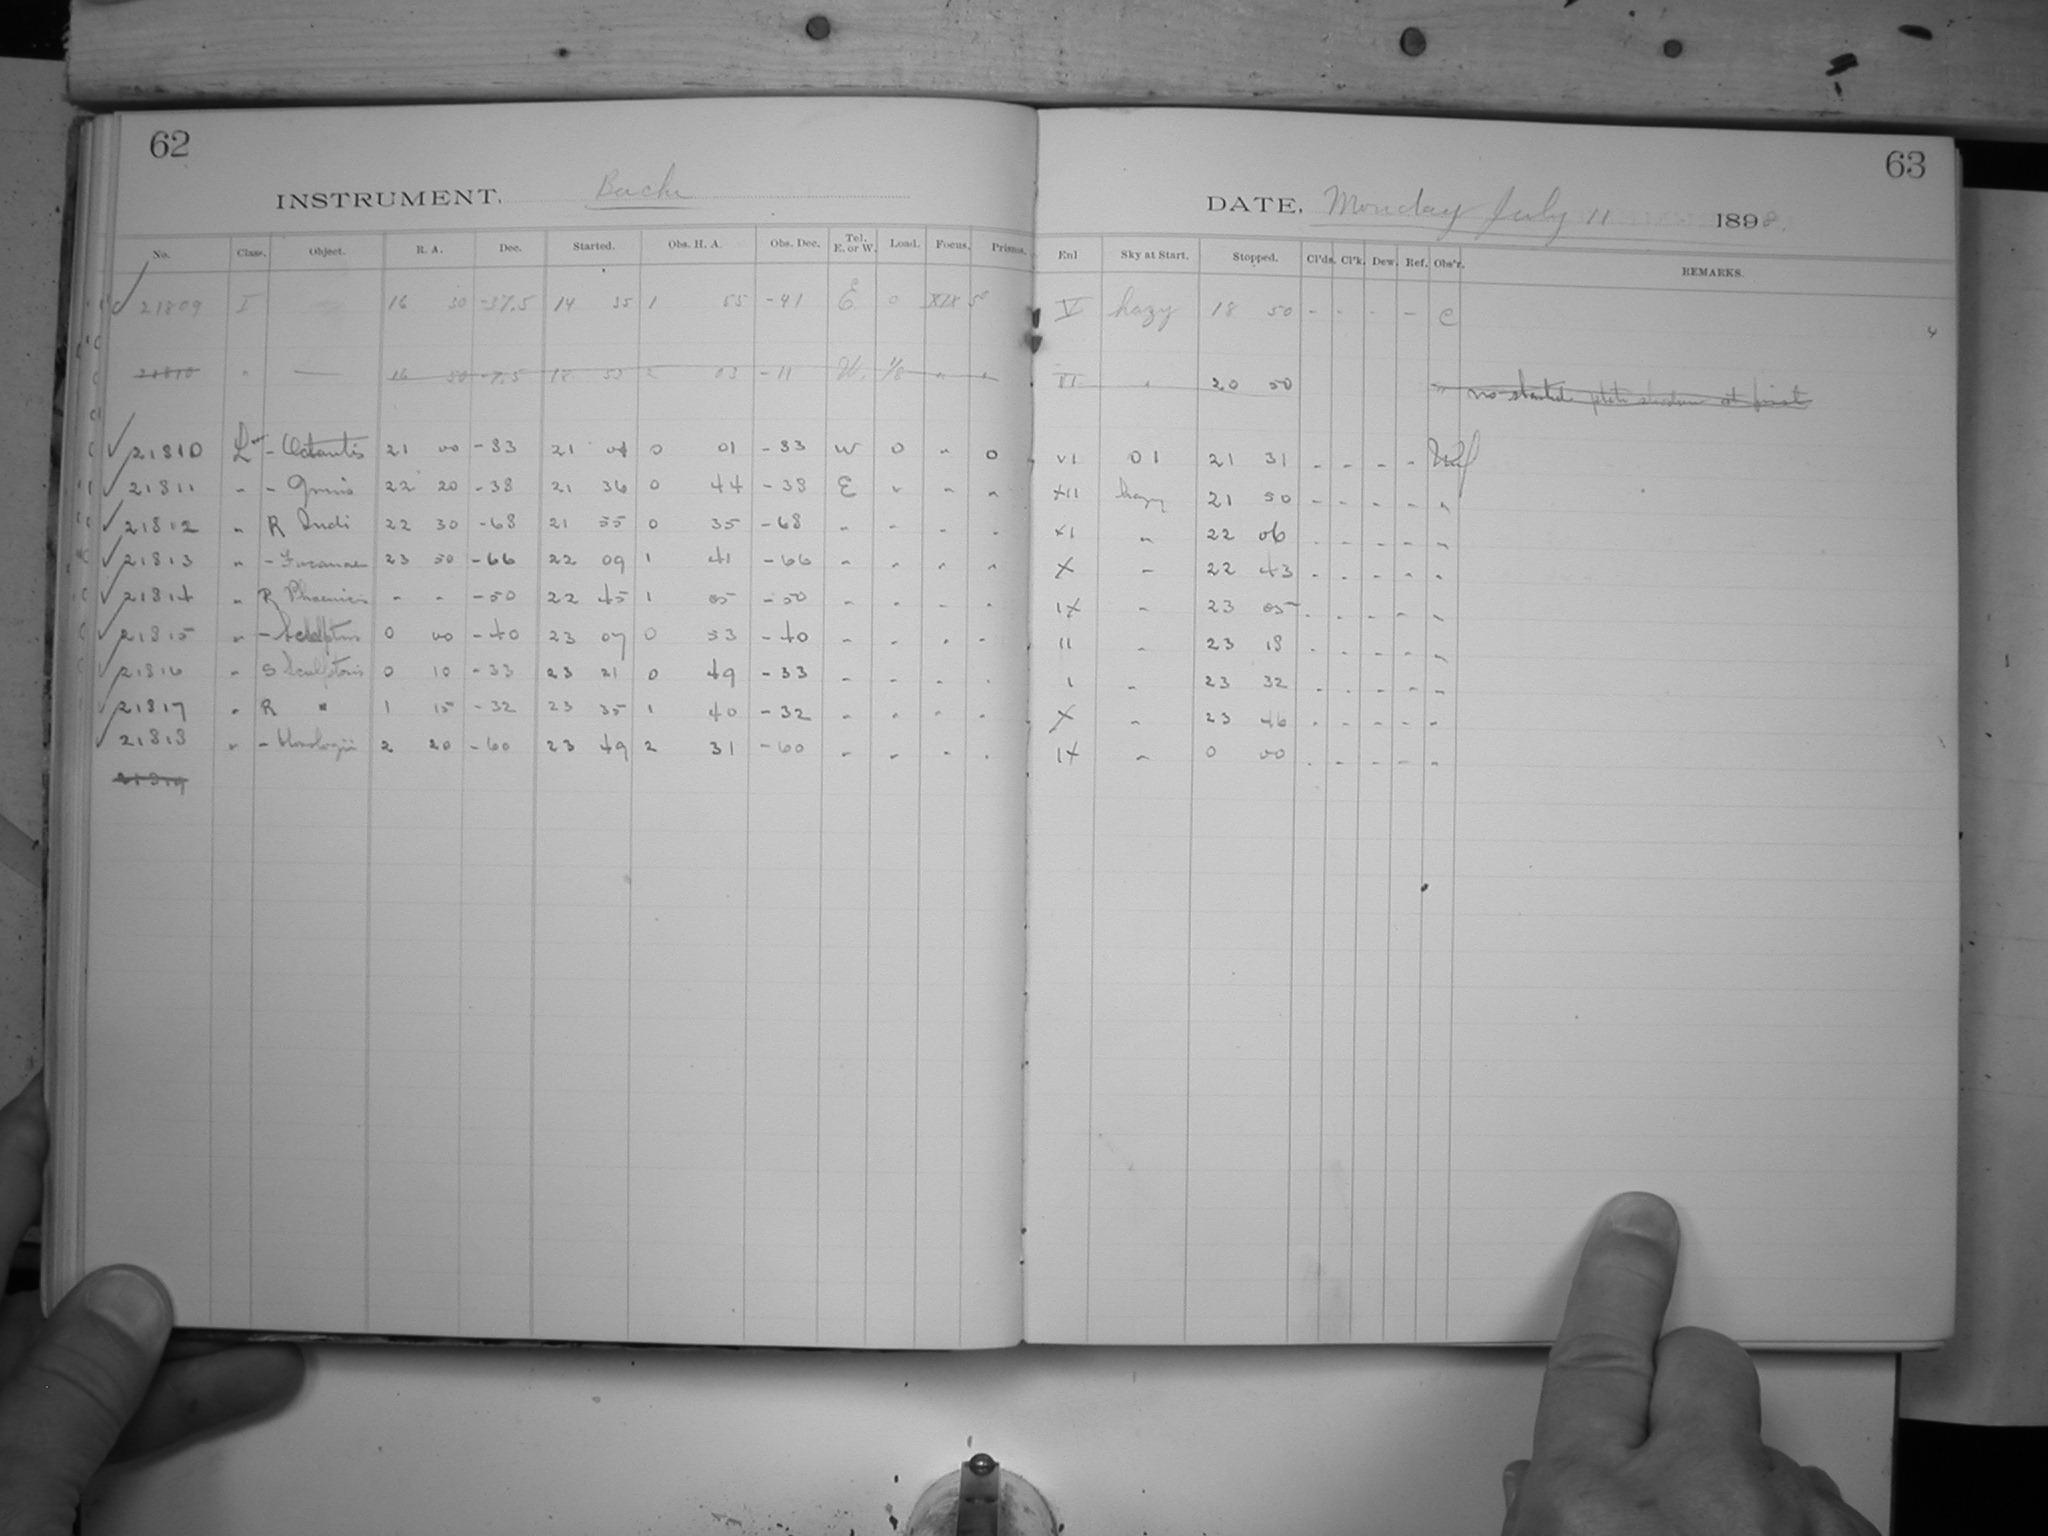 62
INSTRUMENT. Bache
No. Class. Object. R. A. Dec. Started. Obs. H. A. Obs. Dec. Tel. E. or W. Load. Focus. Prisms.
21809 I 16 50 -37.5 14 55 1 55 -41 E 0 XIX 50
21810 " — 16 50 -7.5 18 53 2 03 -11 W. 1/8 " "
21810 L - Octantis 21 00 -83 21 01 0 01 -83 W 0 " 0
21811 " - Gruis 22 20 -38 21 36 0 44 -38 E " " "
21812 " R Indi 22 30 -68 21 55 0 35 -68 " " " "
21813 " - 23 50 -66 22 09 1 41 -66 " " " "
21814 " R Phoenicis " " -50 22 45 1 05 -50 " " " "
21815 " - Sculptoris 0 00 -40 23 07 0 53 -40 " " " "
21816 " S Sculptoris 0 10 -33 23 21 0 49 -33 " " " "
21817 " R " 1 15 -32 23 35 1 40 -32 " " " "
21818 " - Horologii 2 20 -60 23 49 2 31 -60 " " " "
21819
63
DATE, Monday July 11 1898.
Enl Sky at Start. Stopped. Cl'ds. Cl'k. Dew. Ref. Obs'r. REMARKS.
V hazy 18 50 - - - - C
4
VI " 20 50 " no started plate at first
VI 01 21 31 - - - -
XII hazy 21 50 - - - - "
XI " 22 06 - - - - "
X " 22 43 - - - - "
IX " 23 05 - - - - "
II " 23 18 - - - - "
I " 23 32 - - - - "
X " 23 46 - - - - "
IX " 0 00 - - - - "